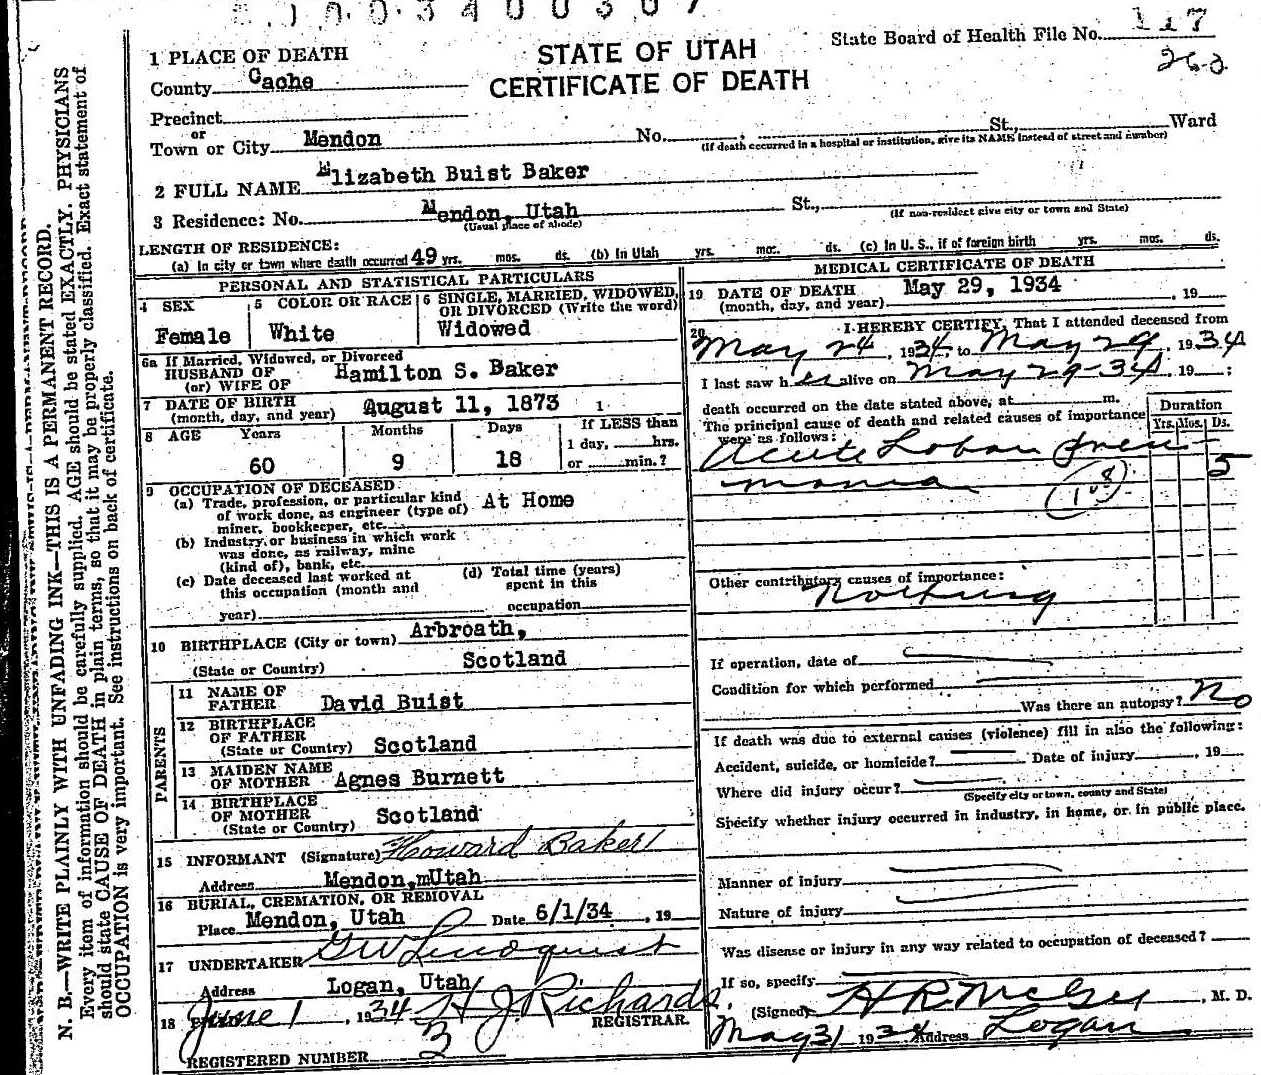 1003400307
State Board of Health File No. 117
262
STATE OF UTAH
CERTIFICATE OF DEATH
1 PLACE OF DEATH
County Cache
Precinct
or
Town or City Mendon No. St., Ward
(If death occurred in a hospital or institution, give its NAME instead of street and number)
2 FULL NAME Elizabeth Buist Baker
3 Residence: No. Mendon, Utah St.,
(Usual place of abode) (If non-resident give city or town and State)
LENGTH OF RESIDENCE:
(a) In city or town where death occurred 49 yrs. mos. ds. (b) In Utah yrs. mos. ds. (c) In U. S., if of foreign birth yrs. mos. ds.
PERSONAL AND STATISTICAL PARTICULARS
4 SEX
Female
5 COLOR OR RACE
White
6 SINGLE, MARRIED, WIDOWED,
OR DIVORCED (Write the word)
Widowed
6a If Married, Widowed, or Divorced
HUSBAND OF
(or) WIFE OF Hamilton S. Baker
7 DATE OF BIRTH
(month, day, and year) August 11, 1873
8 AGE Years Months Days If LESS than
1 day, hrs.
60 9 18 or min.?
9 OCCUPATION OF DECEASED
(a) Trade, profession, or particular kind
of work done, as engineer (type of) At Home
miner, bookkeeper, etc.
(b) Industry or business in which work
was done, as railway, mine
(kind of), bank, etc.
(c) Date deceased last worked at
this occupation (month and
year)
(d) Total time (years)
spent in this
occupation
10 BIRTHPLACE (City or town) Arbroath,
(State or Country) Scotland
PARENTS
11 NAME OF
FATHER David Buist
12 BIRTHPLACE
OF FATHER
(State or Country) Scotland
13 MAIDEN NAME
OF MOTHER Agnes Burnett
14 BIRTHPLACE
OF MOTHER
(State or Country) Scotland
15 INFORMANT (Signature) Howard Baker
Address Mendon,mUtah
16 BURIAL, CREMATION, OR REMOVAL
Place Mendon, Utah Date 6/1/34, 19
17 UNDERTAKER G W Lindquist
Address Logan, Utah
18 June 1, 1934 H J Richards,
REGISTRAR.
REGISTERED NUMBER 3
MEDICAL CERTIFICATE OF DEATH
19 DATE OF DEATH May 29, 1934
(month, day, and year) , 19
20 I HEREBY CERTIFY, That I attended deceased from
May 24, 1934, to May 29, 1934
I last saw her alive on May 29-34, 19 ;
death occurred on the date stated above, at m.
The principal cause of death and related causes of importance
were as follows:
Duration
Yrs. Mos. Ds.
Acute Lobar Pneu 5
monia
108
Other contributory causes of importance:
Nothing
If operation, date of
Condition for which performed
Was there an autopsy? No
If death was due to external causes (violence) fill in also the following:
Accident, suicide, or homicide? Date of injury , 19
Where did injury occur?
(Specify city or town, county and State)
Specify whether injury occurred in industry, in home, or in public place.
Manner of injury
Nature of injury
Was disease or injury in any way related to occupation of deceased?
If so, specify
(Signed) H R McGee, M. D.
May 31 1934 Address Logan
N. B.—WRITE PLAINLY WITH UNFADING INK—THIS IS A PERMANENT RECORD.
Every item of information should be carefully supplied. AGE should be stated EXACTLY. PHYSICIANS
should state CAUSE OF DEATH in plain terms, so that it may be properly classified. Exact statement of
OCCUPATION is very important. See instructions on back of certificate.